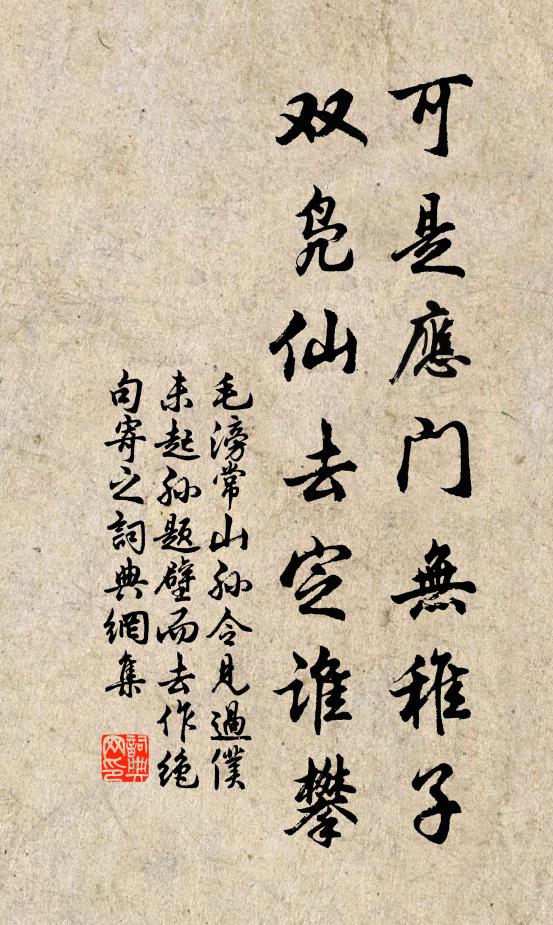 可是應門無稚子
双凫仙去定谁攀
毛滂常山孙令見過僕
未起孙题壁而去作绝
句寄之詞典網集
詞典网印